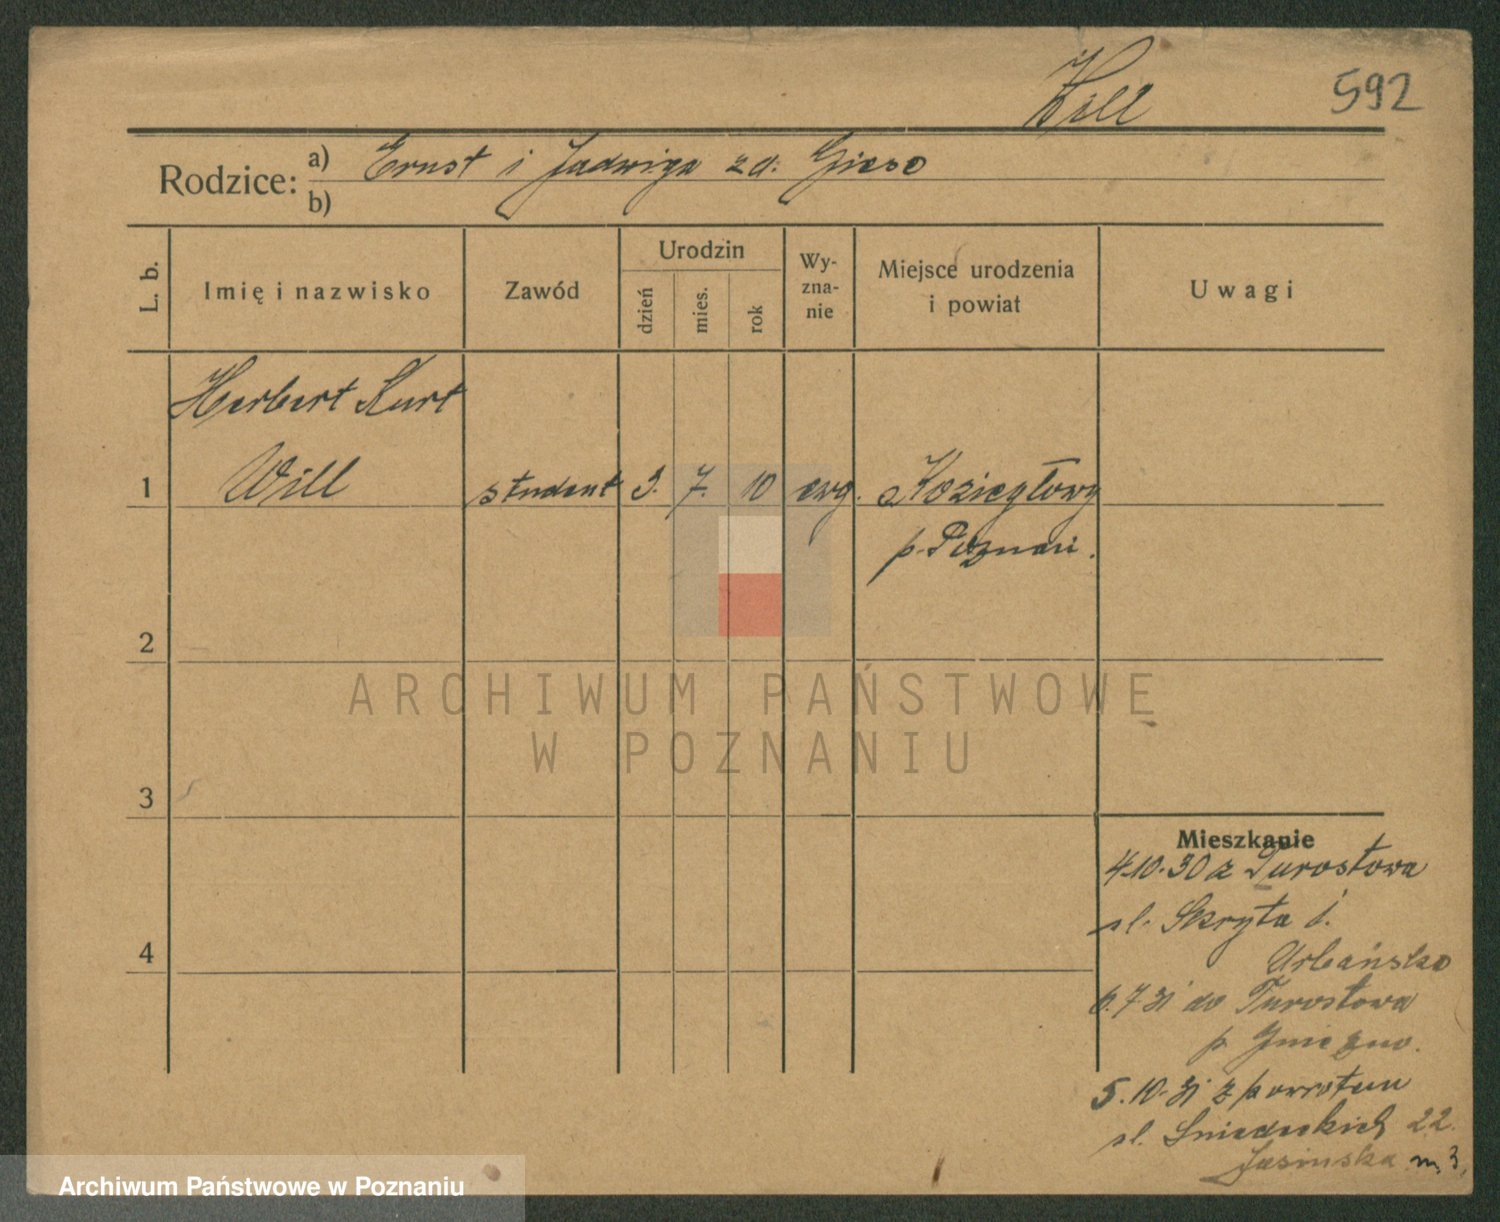 Will
592
Rodzice:
a) Ernst i Jadwiga zd. Giese
b)
L. b.
Imię i nazwisko
Zawód
Urodzin
dzień
mies.
rok
Wy-
zna-
nie
Miejsce urodzenia
i powiat
Uwagi
Herbert Kurt
1 Will student 3. 7. 10 ewg. Koziegłowy
p. Poznań.
2
3
4
Mieszkanie
4.10.30 z Turostowa
ul. Skryta
Urbańska
6.7 31 do Turostowa
p. Gniezno.
5.10.31 z powrotem
ul. Śniadeckich 22.
Jasińska m 3.
ARCHIWUM PAŃSTWOWE
W POZNANIU
Archiwum Państwowe w Poznaniu